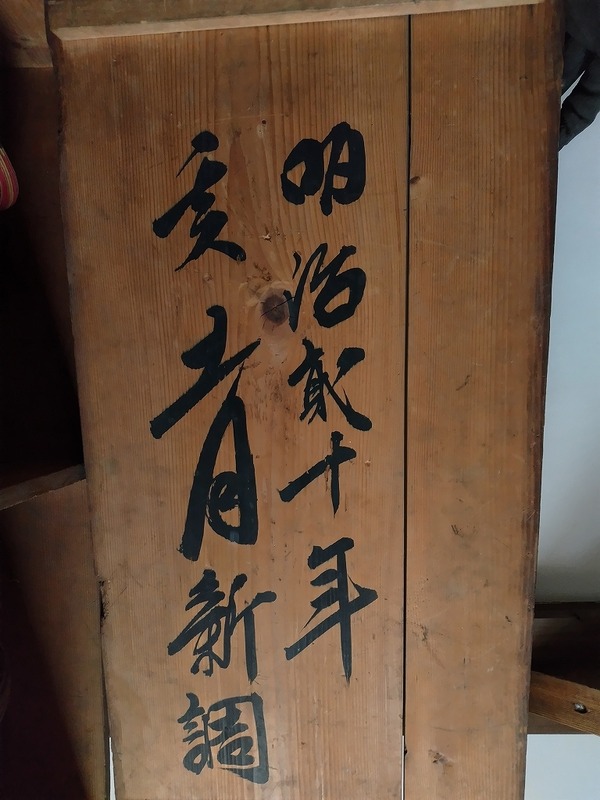 明治貳十年
亥十一月新調